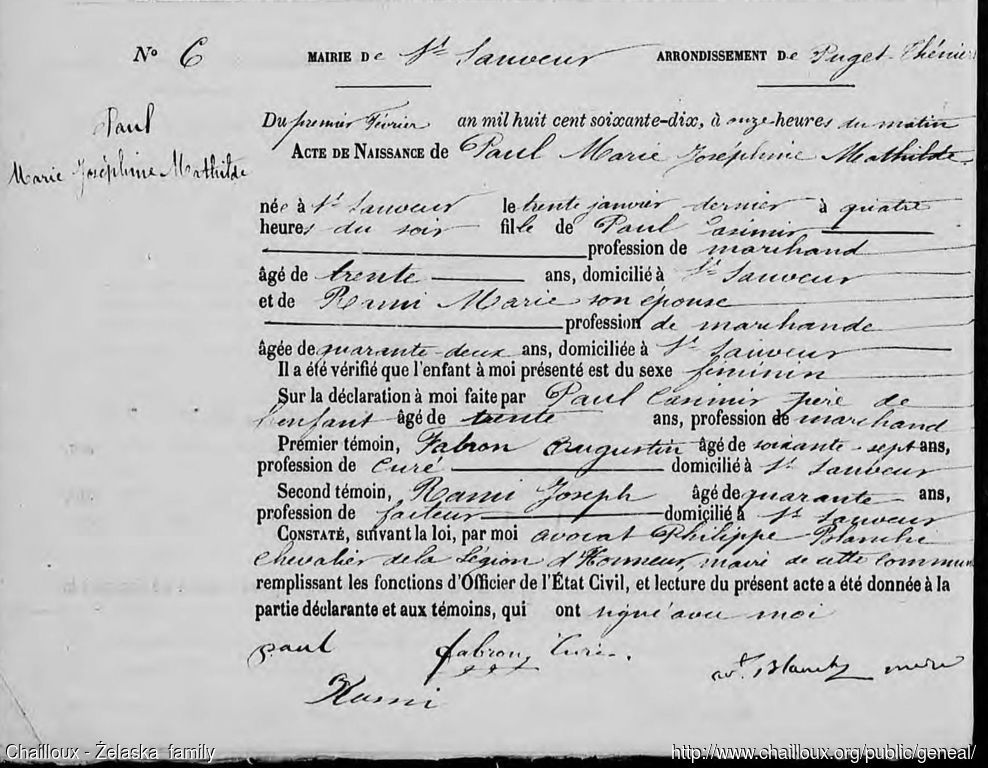 N° 6 MAIRIE De St Sauveur ARRONDISSEMENT De Puget-Théniers
Paul
Marie Joséphine Mathilde
Du premier Février an mil huit cent soixante-dix, à onze heures du matin
ACTE DE NAISSANCE de Paul Marie Joséphine Mathilde
née à St Sauveur le trente janvier dernier à quatre
heures du soir fille de Paul Casimir
profession de marchand
âgé de trente ans, domicilié à St Sauveur
et de Rami Marie son épouse
profession de marchande
âgée de quarante-deux ans, domiciliée à St Sauveur
Il a été vérifié que l'enfant à moi présenté est du sexe féminin
Sur la déclaration à moi faite par Paul Casimir père de
l'enfant âgé de trente ans, profession de marchand
Premier témoin, Fabron Augustin âgé de soixante-sept ans,
profession de Curé domicilié à St Sauveur
Second témoin, Rami Joseph âgé de quarante ans,
profession de facteur domicilié à St Sauveur
CONSTATÉ, suivant la loi, par moi avocat Philippe Blanchi
Chevalier de la Légion d'Honneur, maire de cette commune
remplissant les fonctions d'Officier de l'État Civil, et lecture du présent acte a été donnée à la
partie déclarante et aux témoins, qui ont signé avec moi
paul fabron, Curé.
Rami
Chailloux - Želaska family http://www.chailloux.org/public/geneal/